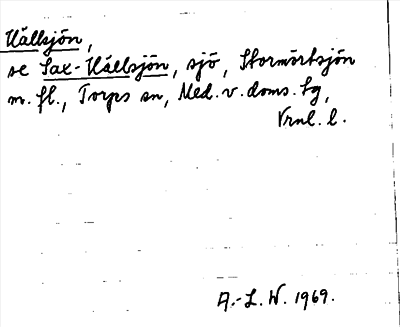 Hällsjön,
se Sax-Hällsjön, sjö, Stormörtsjön
m. fl., Torps sn, Med. v. doms. tg,
Vrnl. l.
A.-L. W. 1969.